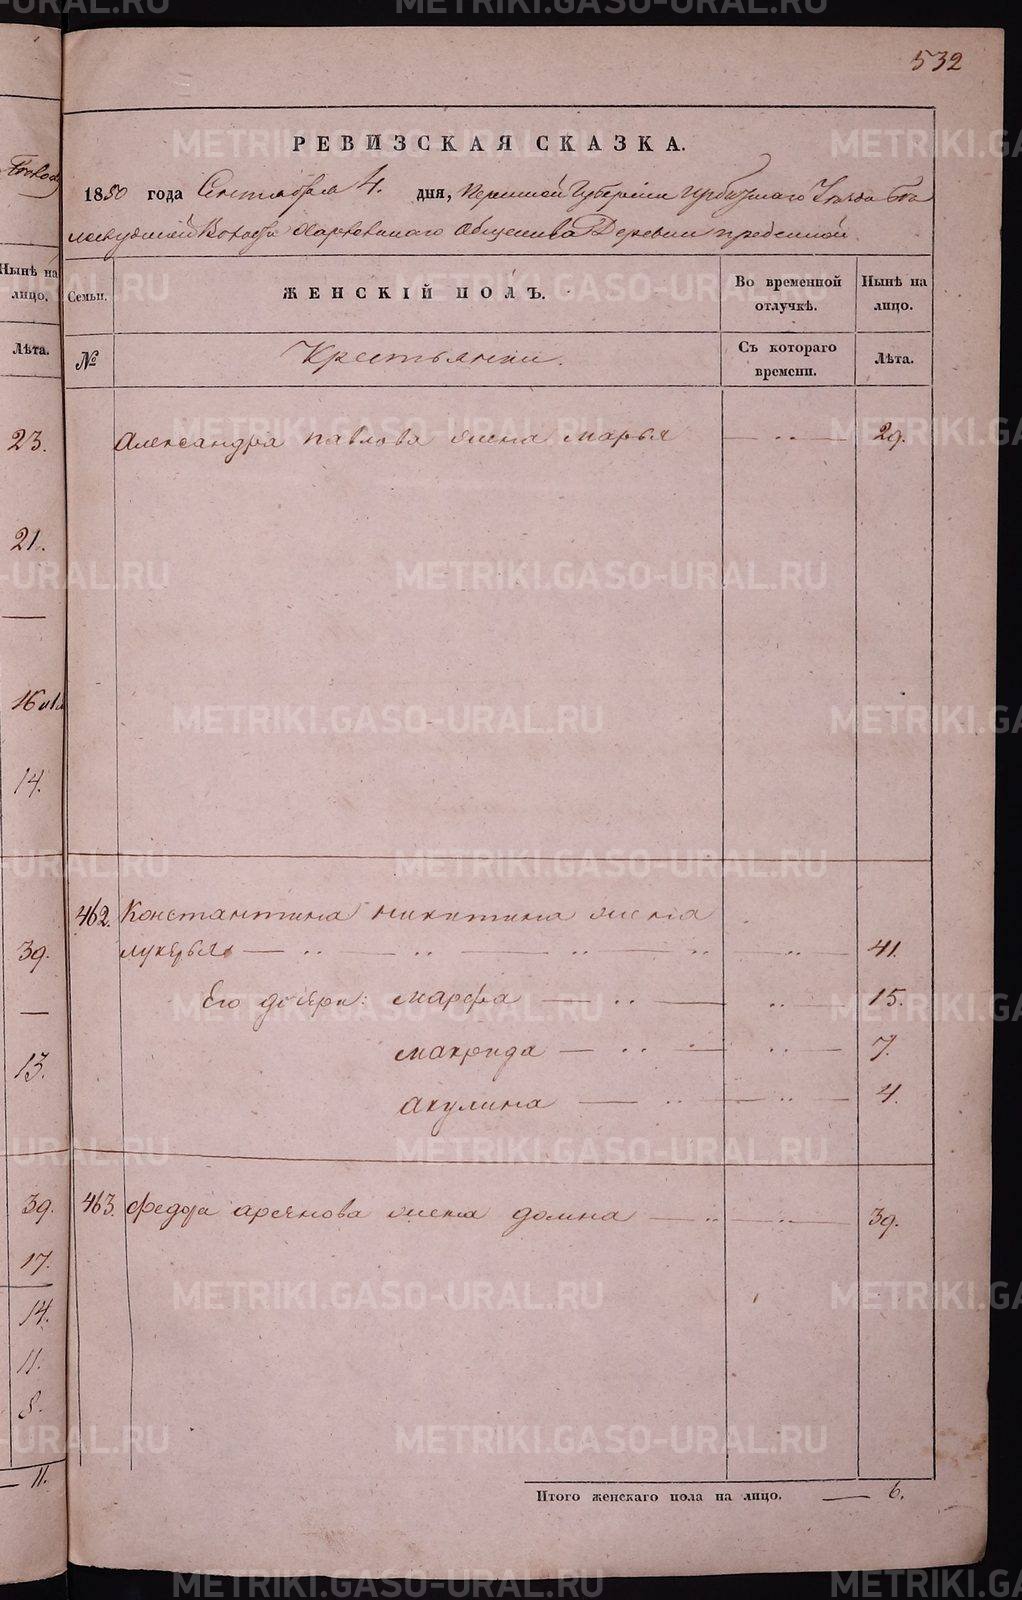 532
РЕВИЗСКАЯ СКАЗКА.
1850 года Сентября 4. дня, Пермской Губернiи Ирбитскаго Уѣзда Бѣ
лослудской Волости Харловскаго Общества Деревни
Нынѣ на лицо. Семьи. ЖЕНСКІЙ ПОЛЪ. Во временной отлучкѣ. Нынѣ на лицо.
Лѣта. № Крестьянки. Съ котораго времени. Лѣта.
23. Александра павлова жена марья — 29.
21.
—
16
14.
462. Константина никитина жена
39. лукерья — 41.
Его дочери: марфа — 15.
—
макрида — 7.
13.
акулина — 4.
39. 463. Федора арсенова жена домна — 39.
17.
14.
11.
8.
11.
Итого женскаго пола на лицо. — 6.
METRIKI.GASO-URAL.RU